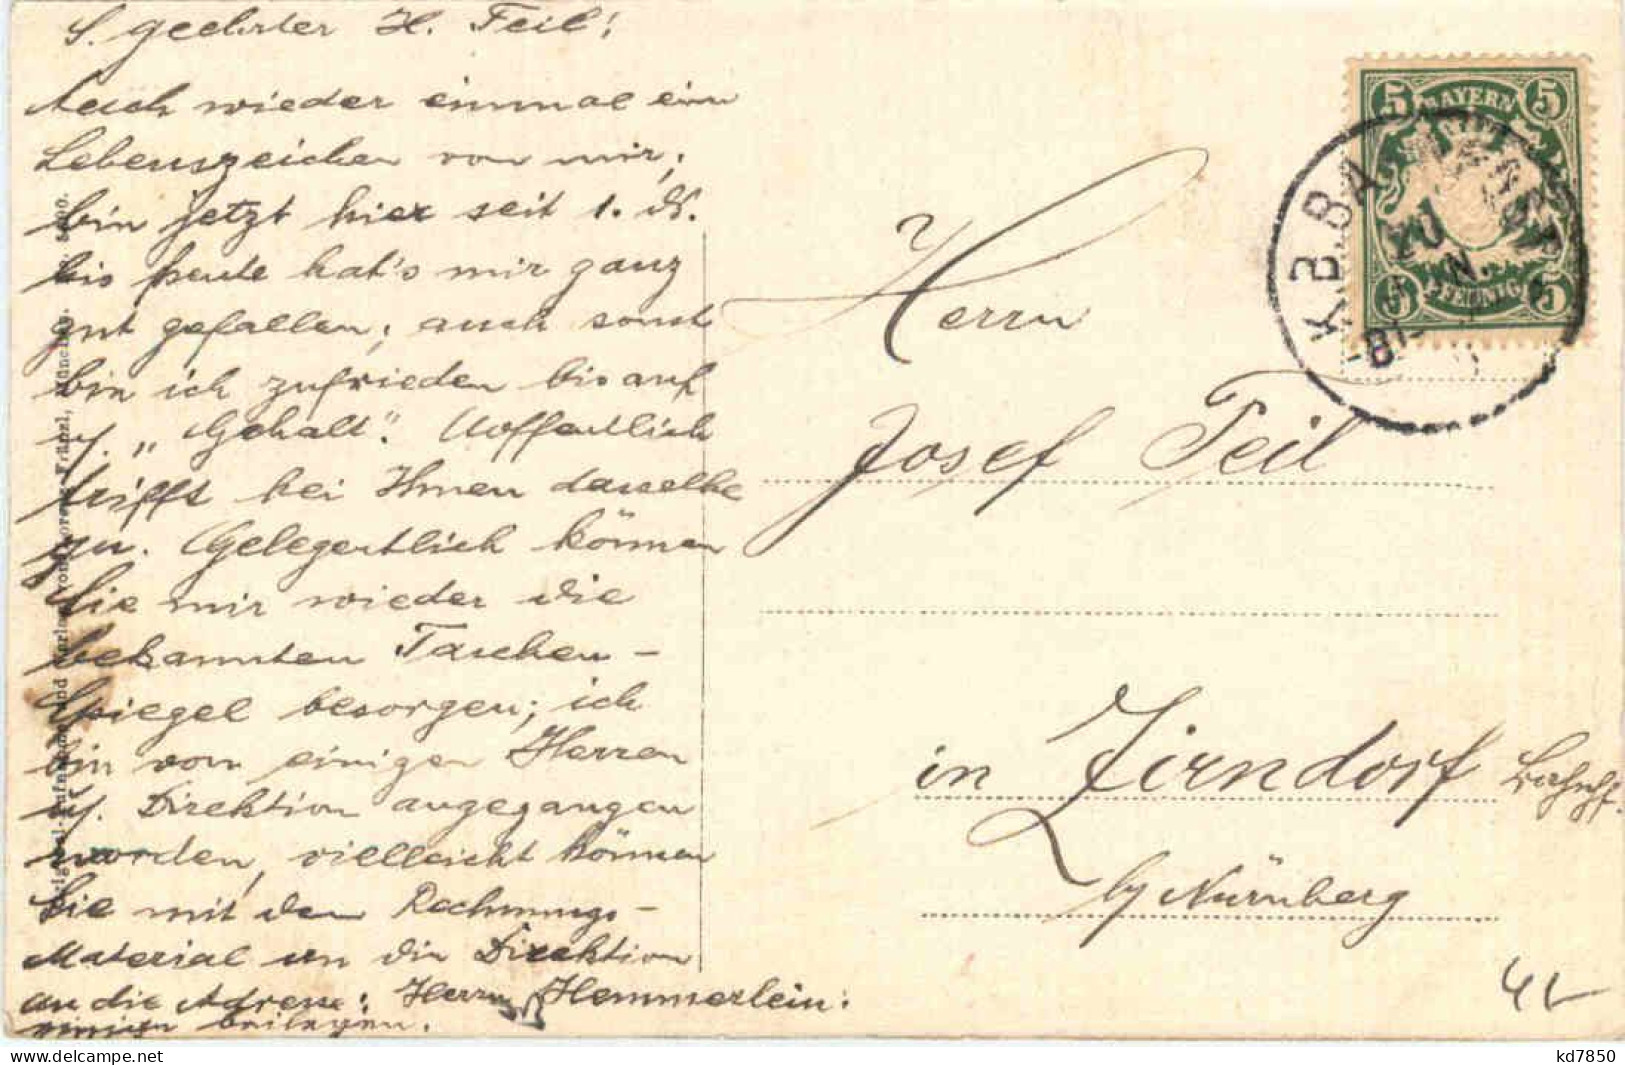 S. geehrter H. Feil!
Auch wieder einmal ein
Lebenszeichen von mir;
bin jetzt hier seit 1. ds.
bis heute hat's mir ganz
gut gefallen; auch sonst
bin ich zufrieden bis auf
"Gehalt". Hoffentlich
trifft bei Ihnen dasselbe
zu. Gelegentlich können
Sie mir wieder die
bekannten Taschen-
spiegel besorgen; ich
bin von einigen Herren
Direktion angegangen
worden, vielleicht können
Sie mit dem Rechnungs-
Material an die Direktion
an die Adresse: Herrn Hemmerlein:
einige beilegen.
Herrn
Josef Feil
in Zirndorf Bahnhf.
b/ Nürnberg
BAYERN
5 5
5 PFENNIG 5
K.B.BA
Fränzl, München.
4L
kd7850